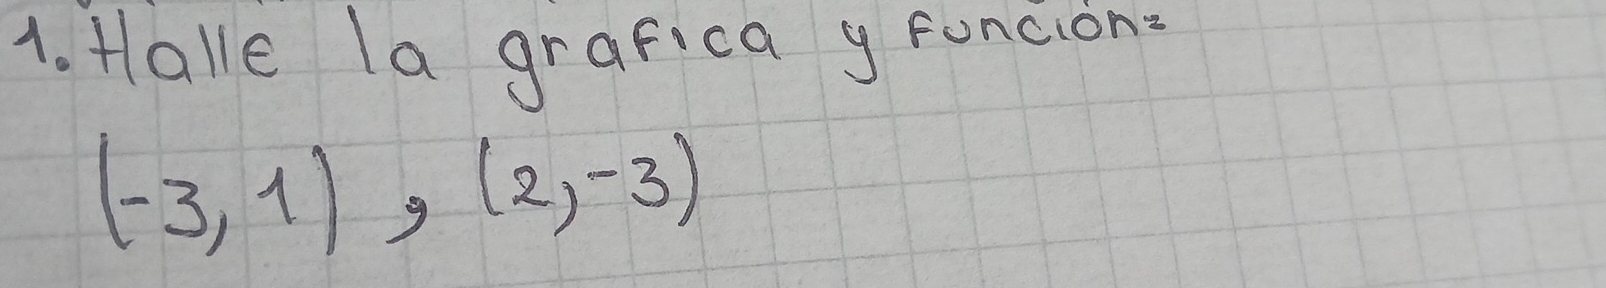 1. Halle la grafica y función:
(-3, 1) , (2, -3)